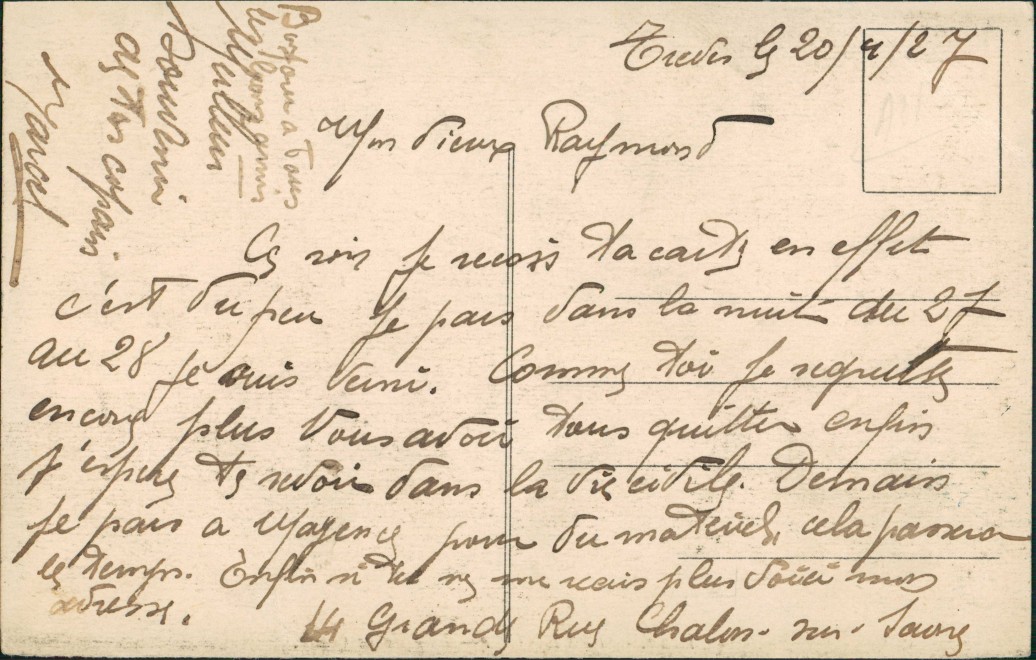 Treves le 20/4/27
Mon Vieux Raymond
Ce soir je recois ta carte en effet
c'est du peu je pars dans la nuit du 27
au 28 je suis veini. Comme toi je regrette
encore plus vous avoir tous quitter enfin
j'espere te revoir dans la vie civile. Demain
je pars a Mayence pour du materiel, cela passera
le temps. Enfin si tu ne me vais plus voici mon
adresse. 44 Grande Rue Chalon-sur-Saone
Bonjour a tous
les bons amis
Meilleur
Souvenir
de ton copain
Marcel